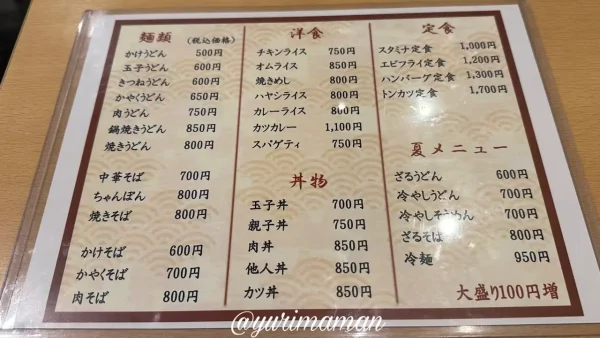 麺類 (税込価格)
かけうどん 500円
玉子うどん 600円
きつねうどん 600円
かやくうどん 650円
肉うどん 750円
鍋焼きうどん 850円
焼きうどん 800円
中華そば 700円
ちゃんぽん 800円
焼きそば 800円
かけそば 600円
かやくそば 700円
肉そば 800円
洋食
チキンライス 750円
オムライス 850円
焼きめし 800円
ハヤシライス 850円
カレーライス 800円
カツカレー 1,100円
スパゲティ 750円
丼物
玉子丼 700円
親子丼 750円
肉丼 850円
他人丼 850円
カツ丼 850円
定食
スタミナ定食 1,000円
エビフライ定食 1,200円
ハンバーグ定食 1,300円
トンカツ定食 1,700円
夏メニュー
ざるうどん 600円
冷やしうどん 700円
冷やしそうめん 700円
ざるそば 800円
冷麺 950円
大盛り100円増
@yurimaman